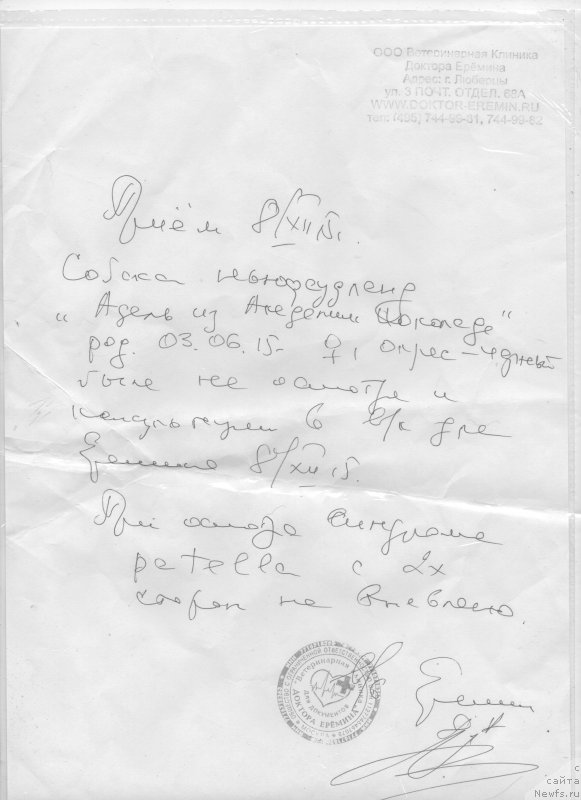 ООО Ветеринарная Клиника
Доктора Ерёмина
Адрес: г. Люберцы
ул. 3 ПОЧТ. ОТДЕЛ. 68А
WWW.DOKTOR-EREMIN.RU
тел: (495) 744-99-81, 744-99-82
Приём 8/XII 15г.
Собака ньюфаундленд
„Адель из Академии Шоколада"
род. 03.06.15г. ♀, окрас-черный
была на осмотре и
консультации в в/к д-ра
Еремина 8/XII 15.
При осмотре синдрома
patella с 2х
сторон не выявлено.
"Ветеринарная клиника
ДЛЯ ДОКУМЕНТОВ
ДОКТОРА ЕРЁМИНА"
МОСКВА
Еремин
с сайта
Newfs.ru